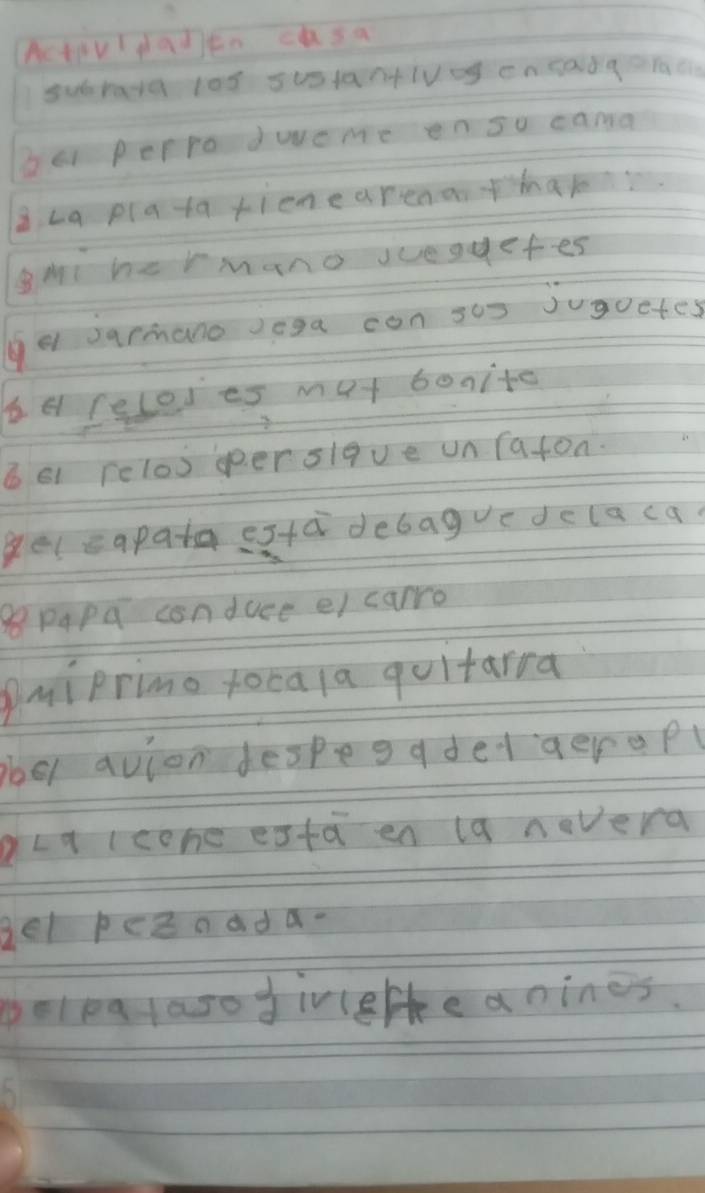 Actividad en casa
subraya los sustantivos en cada
el perro duveme en su cama
2 La plata tiene arena
3 mi hermano
4 el con sus juguetes
5 el reloj es muy bonito
6 el reloj persigue un raton.
7 el zapata está debague de la ca
8 papá conduce el carro
9 mi primo toca la guitarra
10 el avion despega del aerop
La está en la nevera
12 el pez nada.
el divierte a niños.